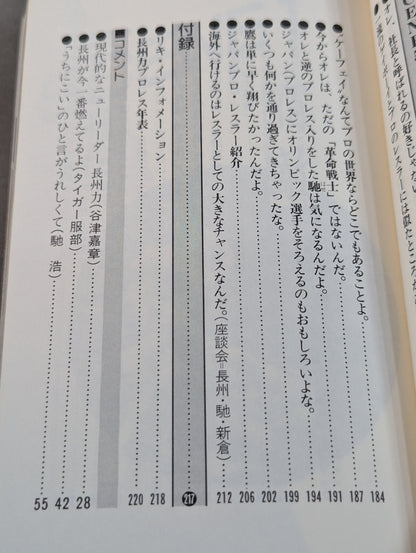 社長と呼ばれるの好きじゃな
レスラーには似たとこ
●「ケーフェイ」なんてプロの世界ならどこでもあることよ。……184
●今からオレは、ただの「革命戦士」ではないんだ。……187
●オレと逆のプロレス入りをした馳は気になるんだよ。……191
●ジャパン(プロレス)にオリンピック選手をそろえるのもおもしろいよな。……194
●いくつも何かを通り過ぎてきちゃったな。……199
●鷹は単に早く翔びたかったんだよ。……202
●ジャパンプロ・レスラー紹介……206
●海外へ行けるのはレスラーとしての大きなチャンスなんだ。(座談会=長州・馳・新倉)……212
付録……217
●リキ・インフォメーション……218
●長州力プロレス年表……220
■コメント
●現代的なニューリーダー長州力(谷津嘉章)……28
●長州が今一番燃えてるよ(タイガー服部)……42
●「うちにこい」のひと言がうれしくて(馳 浩)……55